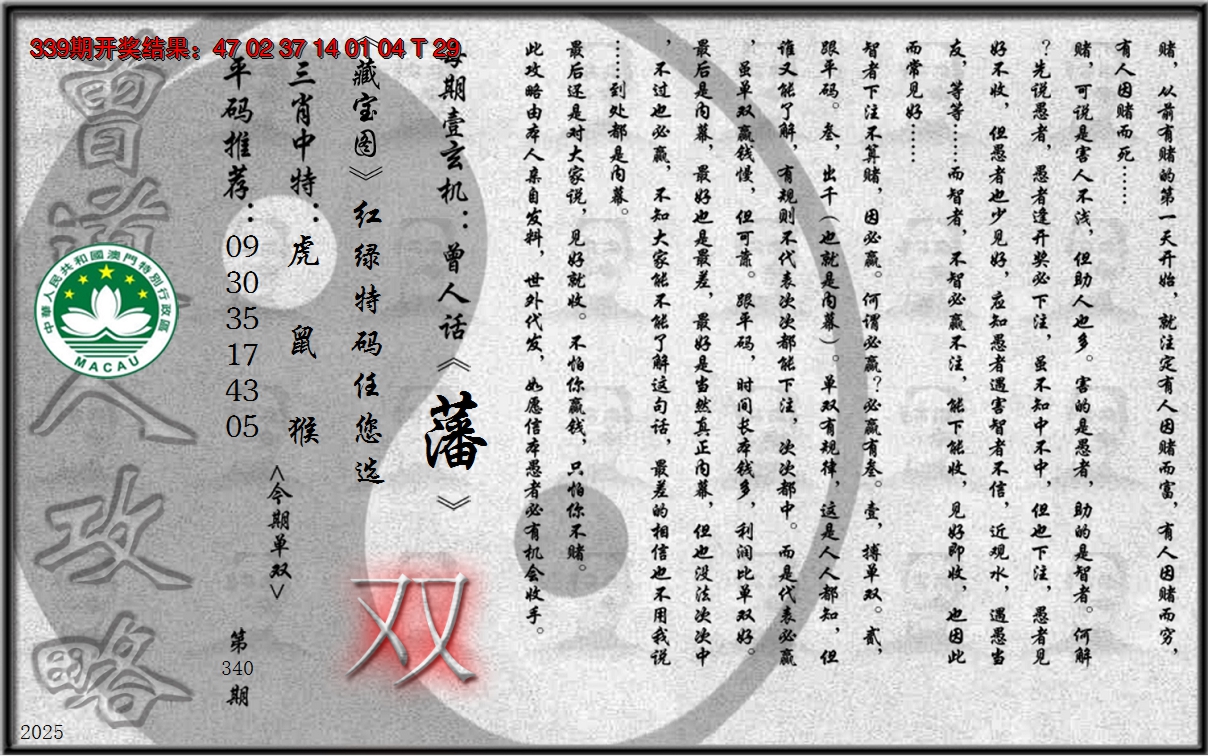 339期开奖结果：47 02 37 14 01 04 T 29
赌，从前有赌的第一天开始，就注定有人因赌而富，有人因赌而穷，
有人因赌而死……
赌，可说是害人不浅，但助人也多。害的是愚者，助的是智者。何解
？先说愚者，愚者逢开奖必下注，虽不知中不中，但也下注，愚者见
好不收，但愚者也少见好，应知愚者遇害智者不信，近观水，遇愚当
友，等等……而智者，不智必赢不注，能下能收，见好即收，也因此
而常见好……
智者下注不算赌，因必赢。何谓必赢？必赢有叁。壹，搏单双。贰，
跟平码。叁，出千（也就是内幕）。单双有规律，这是人人都知，但
谁又能了解，有规则不代表次次都能下注，次次都中。而是代表必赢
，虽单双赢钱慢，但可靠。跟平码，时间长本钱多，利润比单双好。
最后是内幕，最好也是最差，最好是当然真正内幕，但也没法次次中
，不过也必赢，不知大家能不能了解这句话，最差的相信也不用我说
……到处都是内幕。
最后还是对大家说，见好就收。不怕你赢钱，只怕你不赌。
此攻略由本人亲自发料，世外代发，如愿信本愚者必有机会收手。
每期壹玄机：曾人话《藩》
《藏宝图》红绿特码任您选
双
三肖中特：虎 鼠 猴
<今期单双>
平码推荐：09 30 35 17 43 05
第340期
曾道人攻略
中華人民共和國澳門特別行政區
MACAU
2025